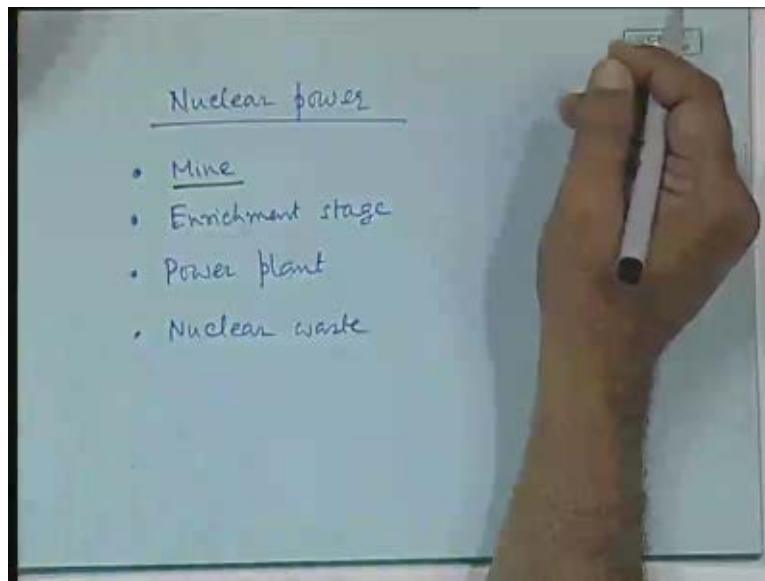 Nuclear power
• Mine
• Enrichment stage
• Power plant
• Nuclear waste